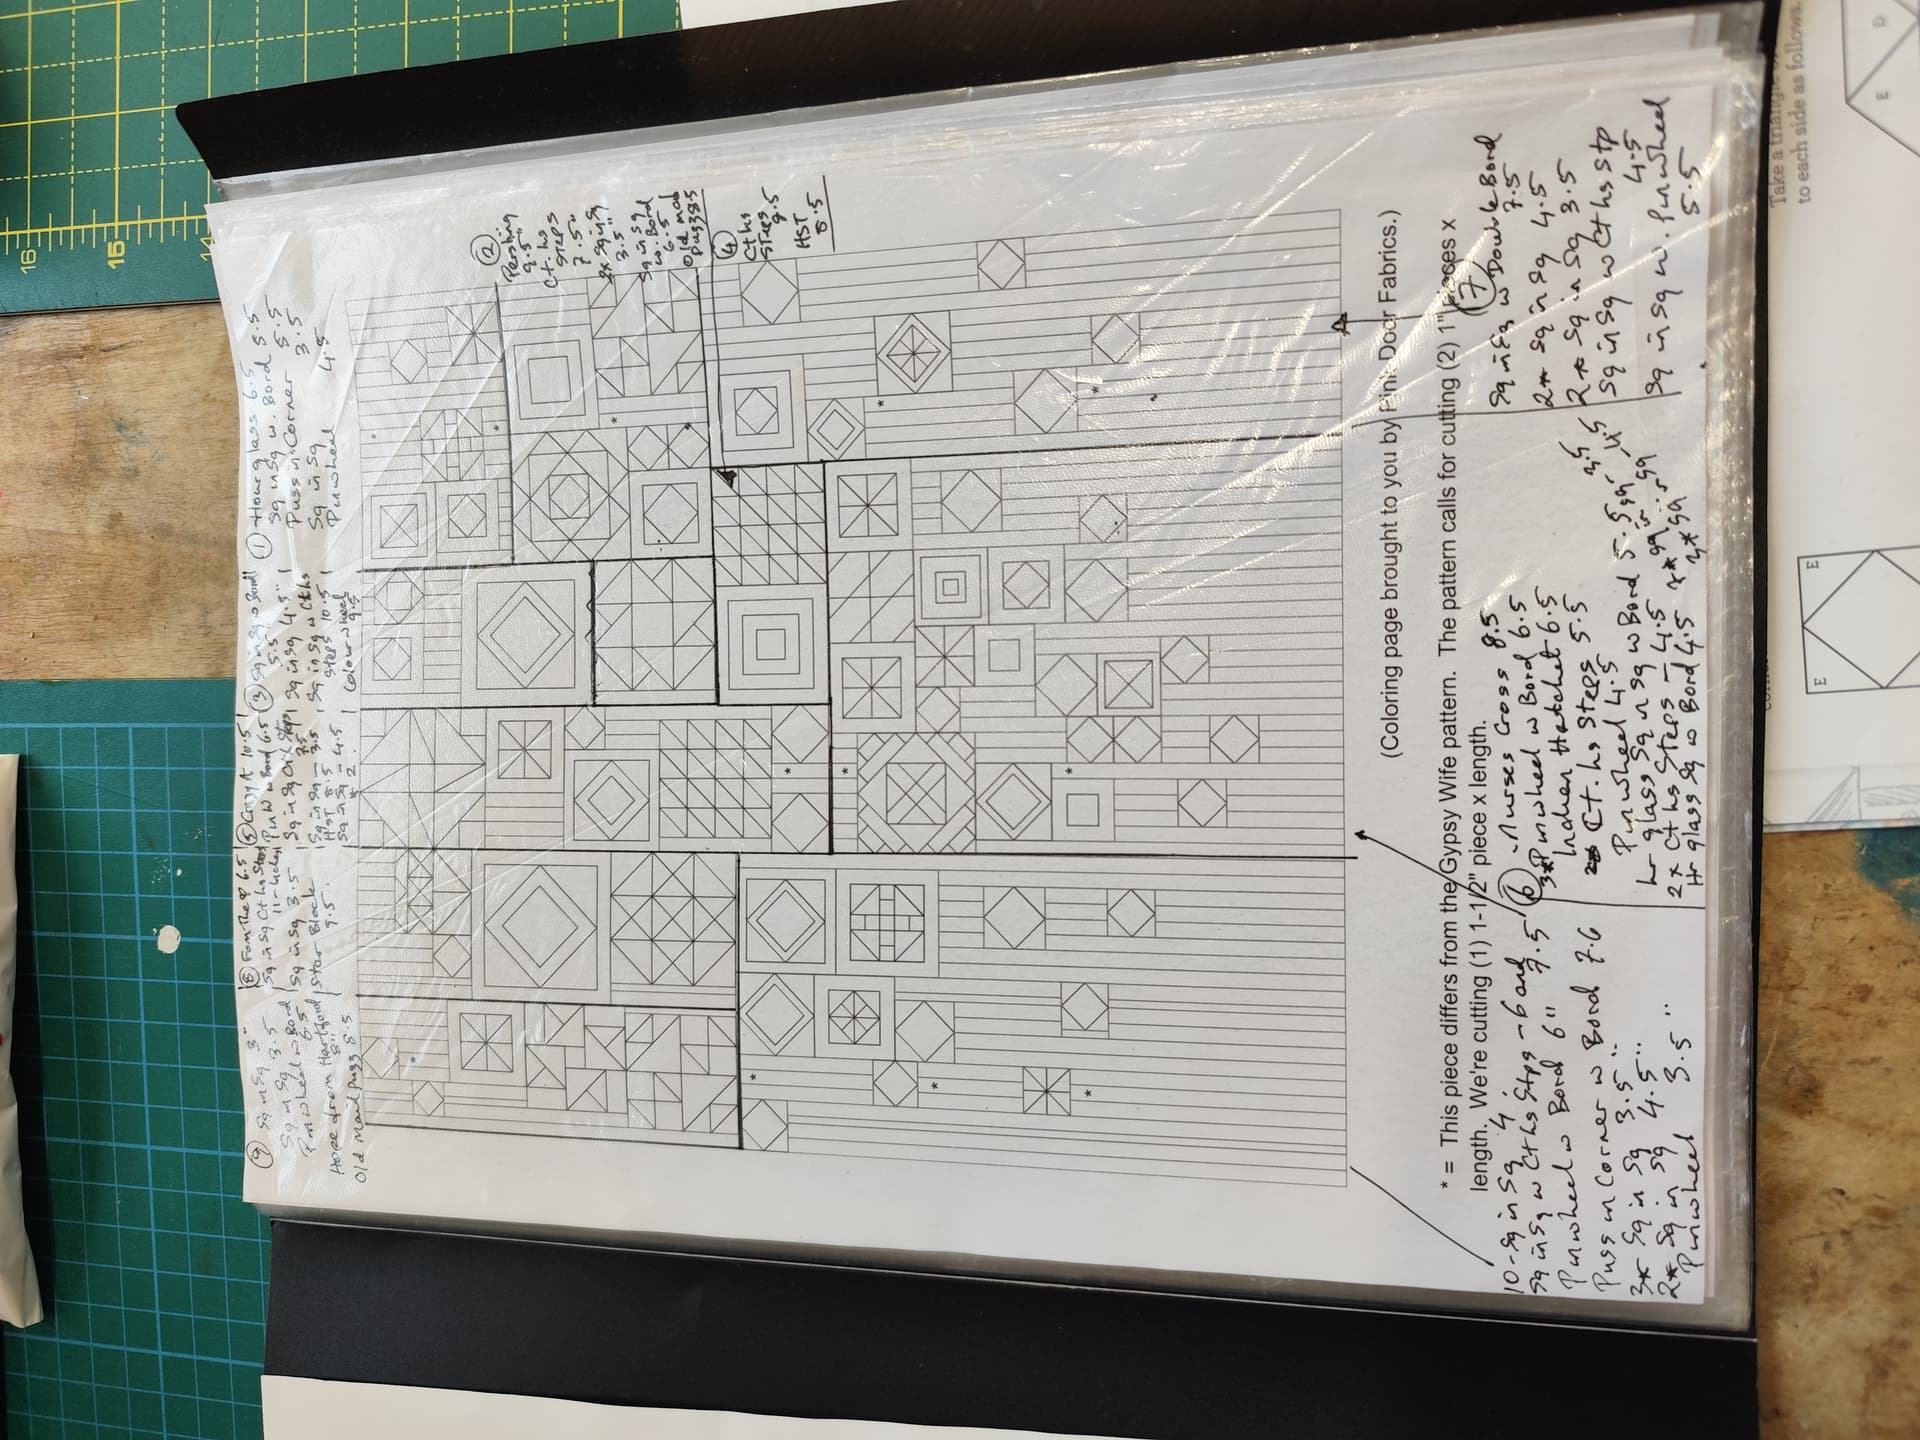 ① Hourglass 6.5
Sq in Sq w. Bord 5.5
Puss in Corner 5.5
Sq in Sq 3.5
Pinwheel 4.5
②
Pershing
9.5"
Ct. hs
steps
7.5"
2x Sq in Sq
3.5"
Sq in Sq
w. Bord
6.5
Old maid
Puzz 8.5
③ Sq in Sq w Bord
5.5
Sq in Sq 4.5"
Sq in Sq w Cths
Steps 10.5
Colour wheel
9.5
④
Cths
Steps
9.5
HST
8.5
⑤ Crazy A 10.5
Pin w w Bord 6.5
Sq in Sq Ct hs Steps
7.5
Sq in Sq - 3.5
HST 8.5
Sq in Sq - 4.5
* 2
⑥ Nurses Cross 8.5
3* Pinwheel w Bord 6.5
Indian Hatchet 6.5
Ct. hs Steps 5.5
Pinwheel 4.5
Sq in Sq w Bord 5.5
2x Cths Steps - 4.5
Hr glass Sq w Bord 4.5
⑦
Sq in Sq w Double Bord
7.5
2* Sq in Sq 4.5
2* Sq in Sq 3.5
Sq in Sq w Ct hs Stp
4.5
Sq in Sq w. Pinwheel
5.5
⑧ From the 6.5
Sq in Sq Ct hs Steps
11-inches
Sq in Sq 3.5
Star Block
9.5
⑨ Sq in Sq 3"
Sq in Sq 3.5
Pinwheel w Bord
6.5
Hope from Hartford
8"
Old Maid Puzz 8.5
(Coloring page brought to you by Pink Door Fabrics.)
* = This piece differs from the Gypsy Wife pattern. The pattern calls for cutting (2) 1" pieces x
length. We're cutting (1) 1-1/2" piece x length.
10 - Sq in Sq 4"
Sq in Sq w Cths Stps - Bord 7.5
Pinwheel w Bord 6"
Puss in Corner w Bord 7.6
3* Sq in Sq 3.5"
2* Sq in Sq 4.5"
Pinwheel 3.5"
16
15
14
Take a triang
to each side as follows.
E
D
E
E